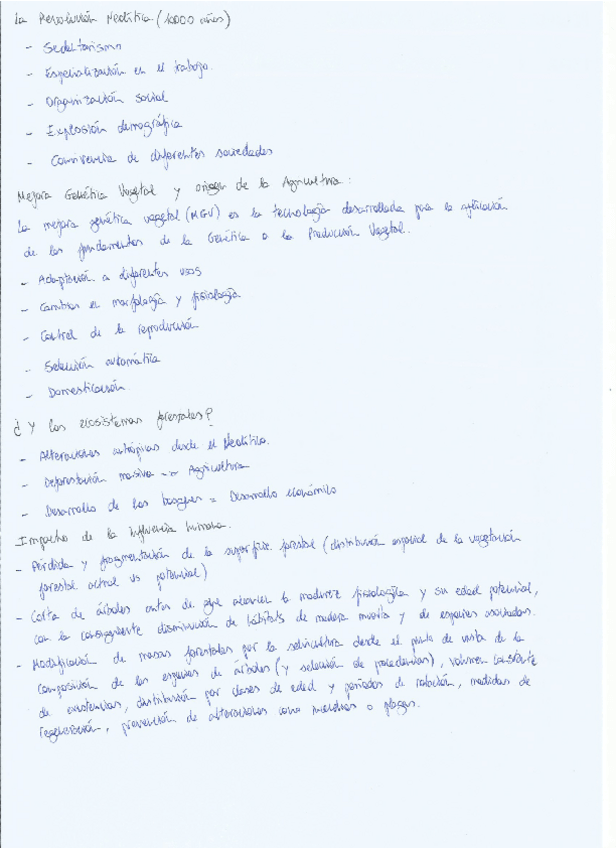 La Revolución Neolítica (10000 años)
- Sedentarismo
- Especialización en el trabajo.
- Organización social
- Explosión demográfica
- Convivencia de diferentes sociedades
Mejora Genética Vegetal y origen de la Agricultura:
La mejora genética vegetal (MGV) es la tecnología desarrollada para la aplicación
de los fundamentos de la Genética a la Producción Vegetal.
- Adaptación a diferentes usos
- Cambios en morfología y fisiología
- Control de la reproducción
- Selección automática
- Domesticación.
¿Y los ecosistemas forestales?
- Alteraciones antrópicas desde el Neolítico.
- Deforestación masiva -> Agricultura
- Desarrollo de los bosques = Desarrollo económico
Impacto de la influencia humana.
- Pérdida y fragmentación de la superficie forestal (distribución espacial de la vegetación
forestal actual vs potencial)
- Corta de árboles antes de que alcancen la madurez fisiológica y su edad potencial,
con la consiguiente disminución de hábitats de madera muerta y de especies asociadas.
- Modificación de masas forestales por la selvicultura desde el punto de vista de la
composición de las especies de árboles (y selección de procedencias), volumen constante
de existencias, distribución por clases de edad y periodos de rotación, medidas de
regeneración, prevención de alteraciones como incendios o plagas.